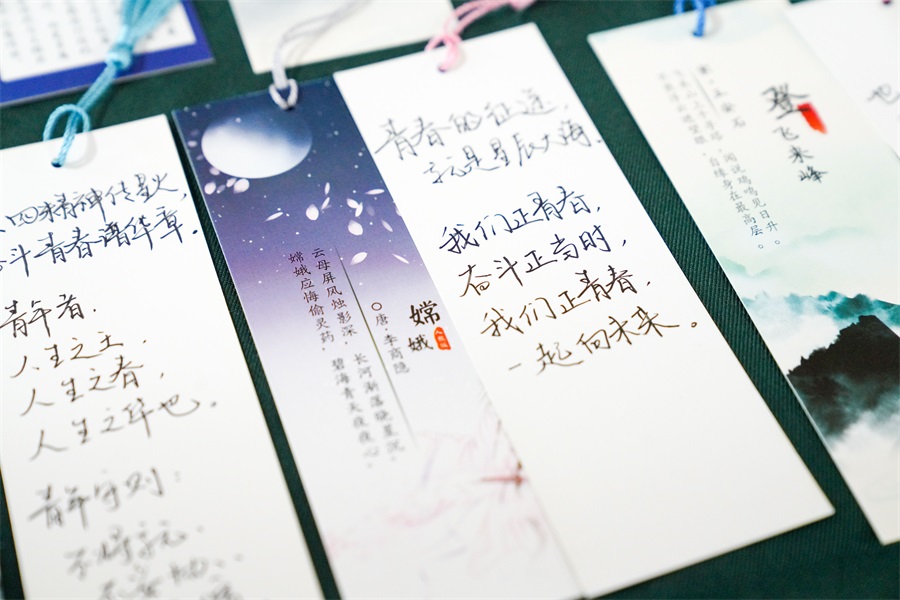 四精神传星火，
奋斗青春谱华章．
青年者，
人生之王，
人生之春，
人生之华也。
青年守则：
嫦娥
唐·李商隐
云母屏风烛影深，长河渐落晓星沉。
嫦娥应悔偷灵药，碧海青天夜夜心。
青春的征途，
就是星辰大海．
我们正青春，
奋斗正当时，
我们正青春，
一起向未来。
登飞来峰
宋·王安石
闻说鸡鸣见日升。
自缘身在最高层。
也